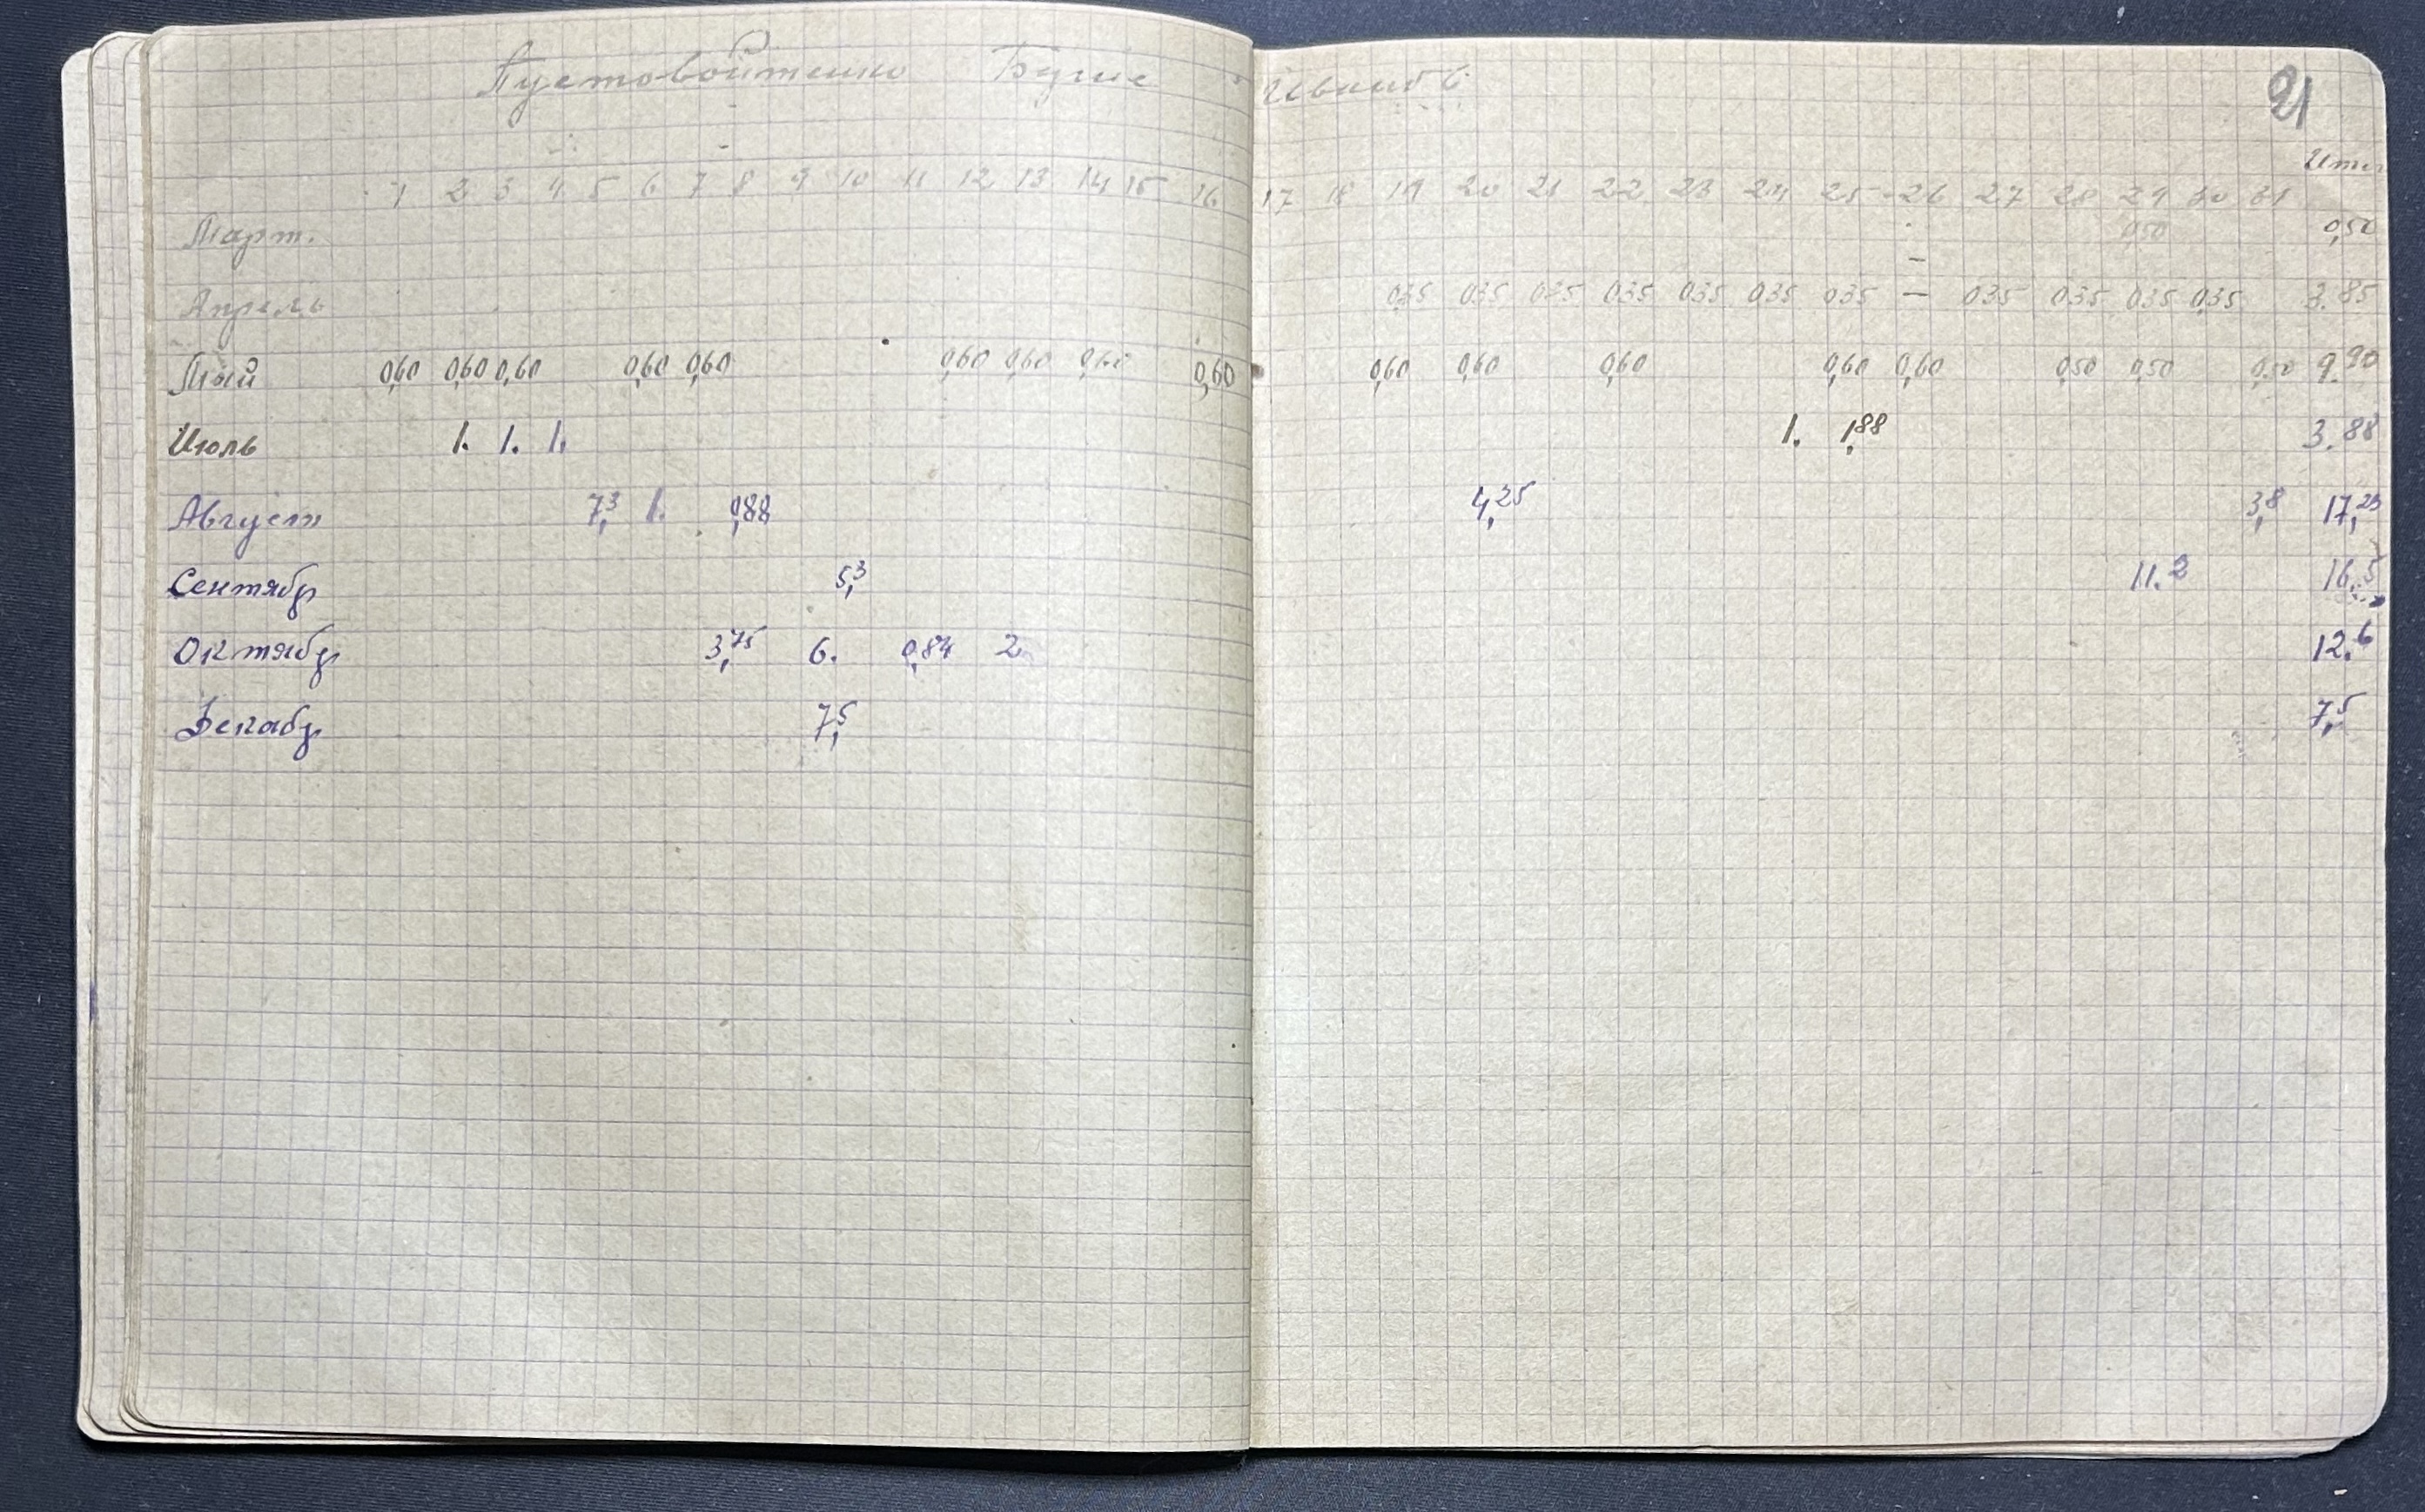 Пустовойтенко
21
Итог
1 2 3 4 5 6 7 8 9 10 11 12 13 14 15 16 17 18 19 20 21 22 23 24 25 26 27 28 29 30 31
Март. 0,50 0,50
Апрель 0,35 0,35 0,35 0,35 0,35 0,35 0,35 — 0,35 0,35 0,35 0,35 3.85
Май 0,60 0,60 0,60 0,60 0,60 0,60 0,60 0,60 0,60 0,60 0,60 0,60 0,60 0,60 0,50 0,50 0,50 9.90
Июль 1. 1. 1. 1. 1,88 3.88
Август 7,3 1. 0,88 4,25 3,8 17,23
Сентябр 5,3 11.2 16.5
Октябр 3,75 6. 0,84 2 12.6
Декабр 7,5 7,5